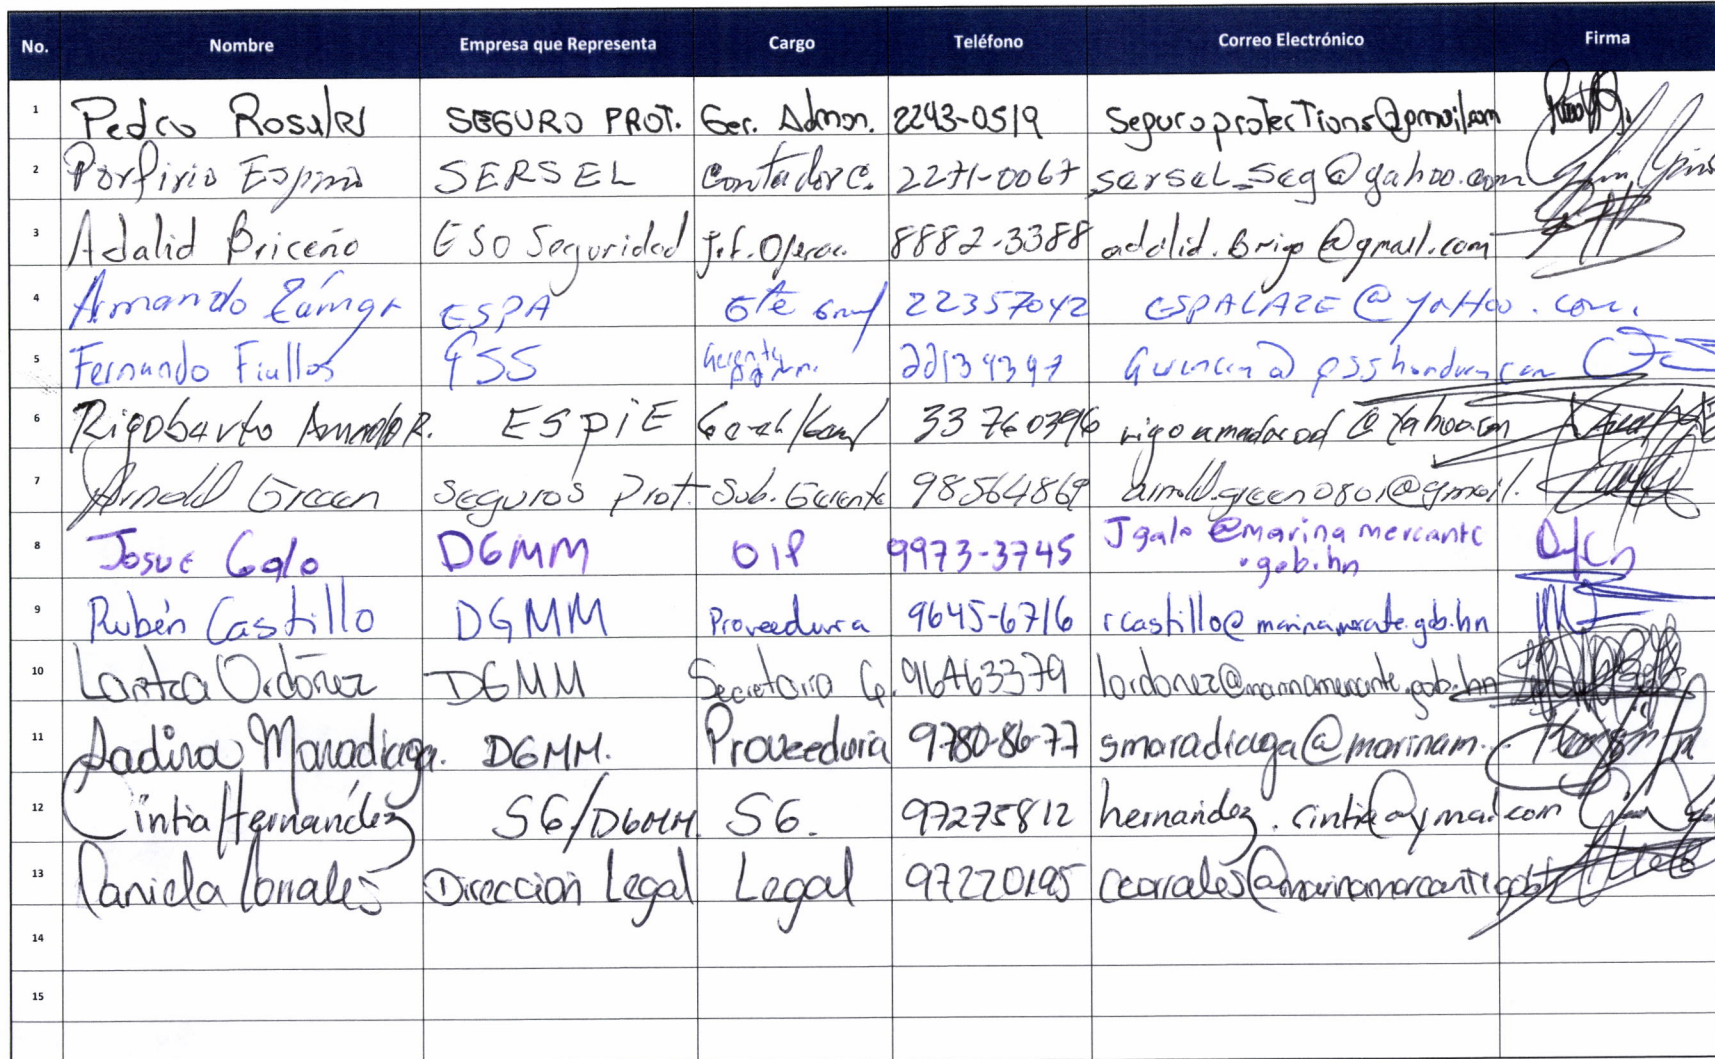 No. Nombre Empresa que Representa Cargo Teléfono Correo Electrónico Firma
1 Pedro Rosales SEGURO PROT. Ger. Admon. 2243-0519 Seguroprotections@gmail.com
2 Porfirio Espino SERSEL Contador C. 2271-0067 sersel_seg@yahoo.com
3 Adalid Briceño ESO Seguridad Jef. Operac. 8882-3388 adalid.brigo@gmail.com
4 Armando ESPA Gte 22357042 ESPALAZE@yaHoo.com.
5 Fernando Fiallos Gerente 22134397
6 Rigoberto R. ESPiE
7 Arnold Green Seguros Prot. Sub. Gerente 98564869 arnold.green0801@gmail.
8 Josue Galo DGMM OIP 9973-3745 Jgalo@marinamercante
.gob.hn
9 Rubén Castillo DGMM Proveeduria 9645-6716 rcastillo@marinamercante.gob.hn
10 Ordóñez DGMM Secretaria G. 96463379 lordonez@marinamercante.gob.hn
11 Sadina Maradiaga. DGMM. Proveeduria 9780-86-77 smaradiaga@marinam.
12 Cintia Hernández SG/DGMM SG. 97275812 hernandez.cintia@ymail.com
13 Daniela Corrales Dirección Legal Legal 97220195 ccorrales@marinamercante.gob
14
15